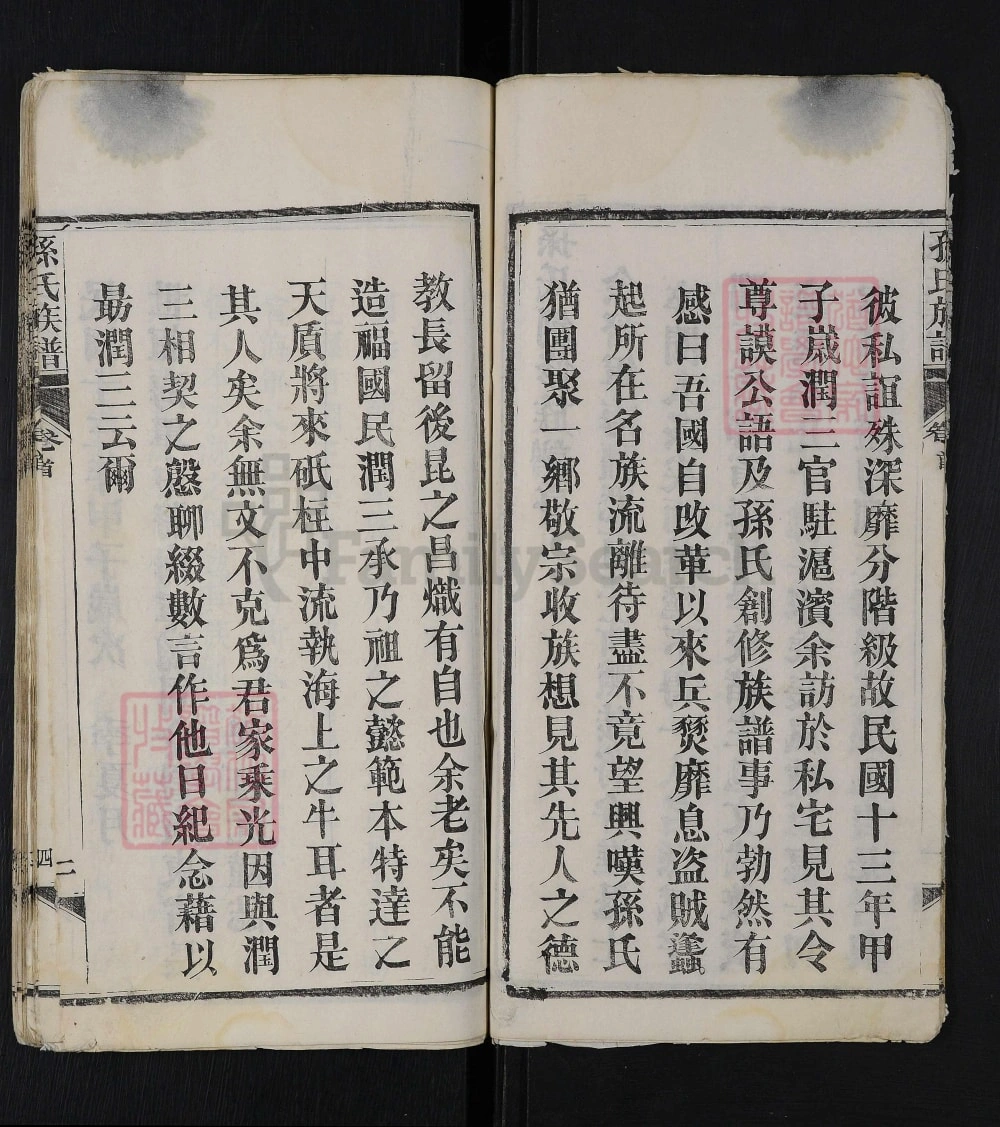 彼私誼殊深靡分階級故民國十三年甲
子歲潤三官駐滬濱余訪於私宅見其令
尊謨公語及孫氏創修族譜事乃勃然有
感曰吾國自改革以來兵燹靡息盜賊蠭
起所在名族流離待盡不竟望興嘆孫氏
猶團聚一鄉敬宗收族想見其先人之德
孫氏族譜
卷首
四
二
教長留後昆之昌熾有自也余老矣不能
造福國民潤三承乃祖之懿範本特達之
天質將來砥柱中流執海上之牛耳者是
其人矣余無文不克爲君家乘光因與潤
三相契之慇聊綴數言作他日紀念藉以
勗潤三云爾
FamilySearch